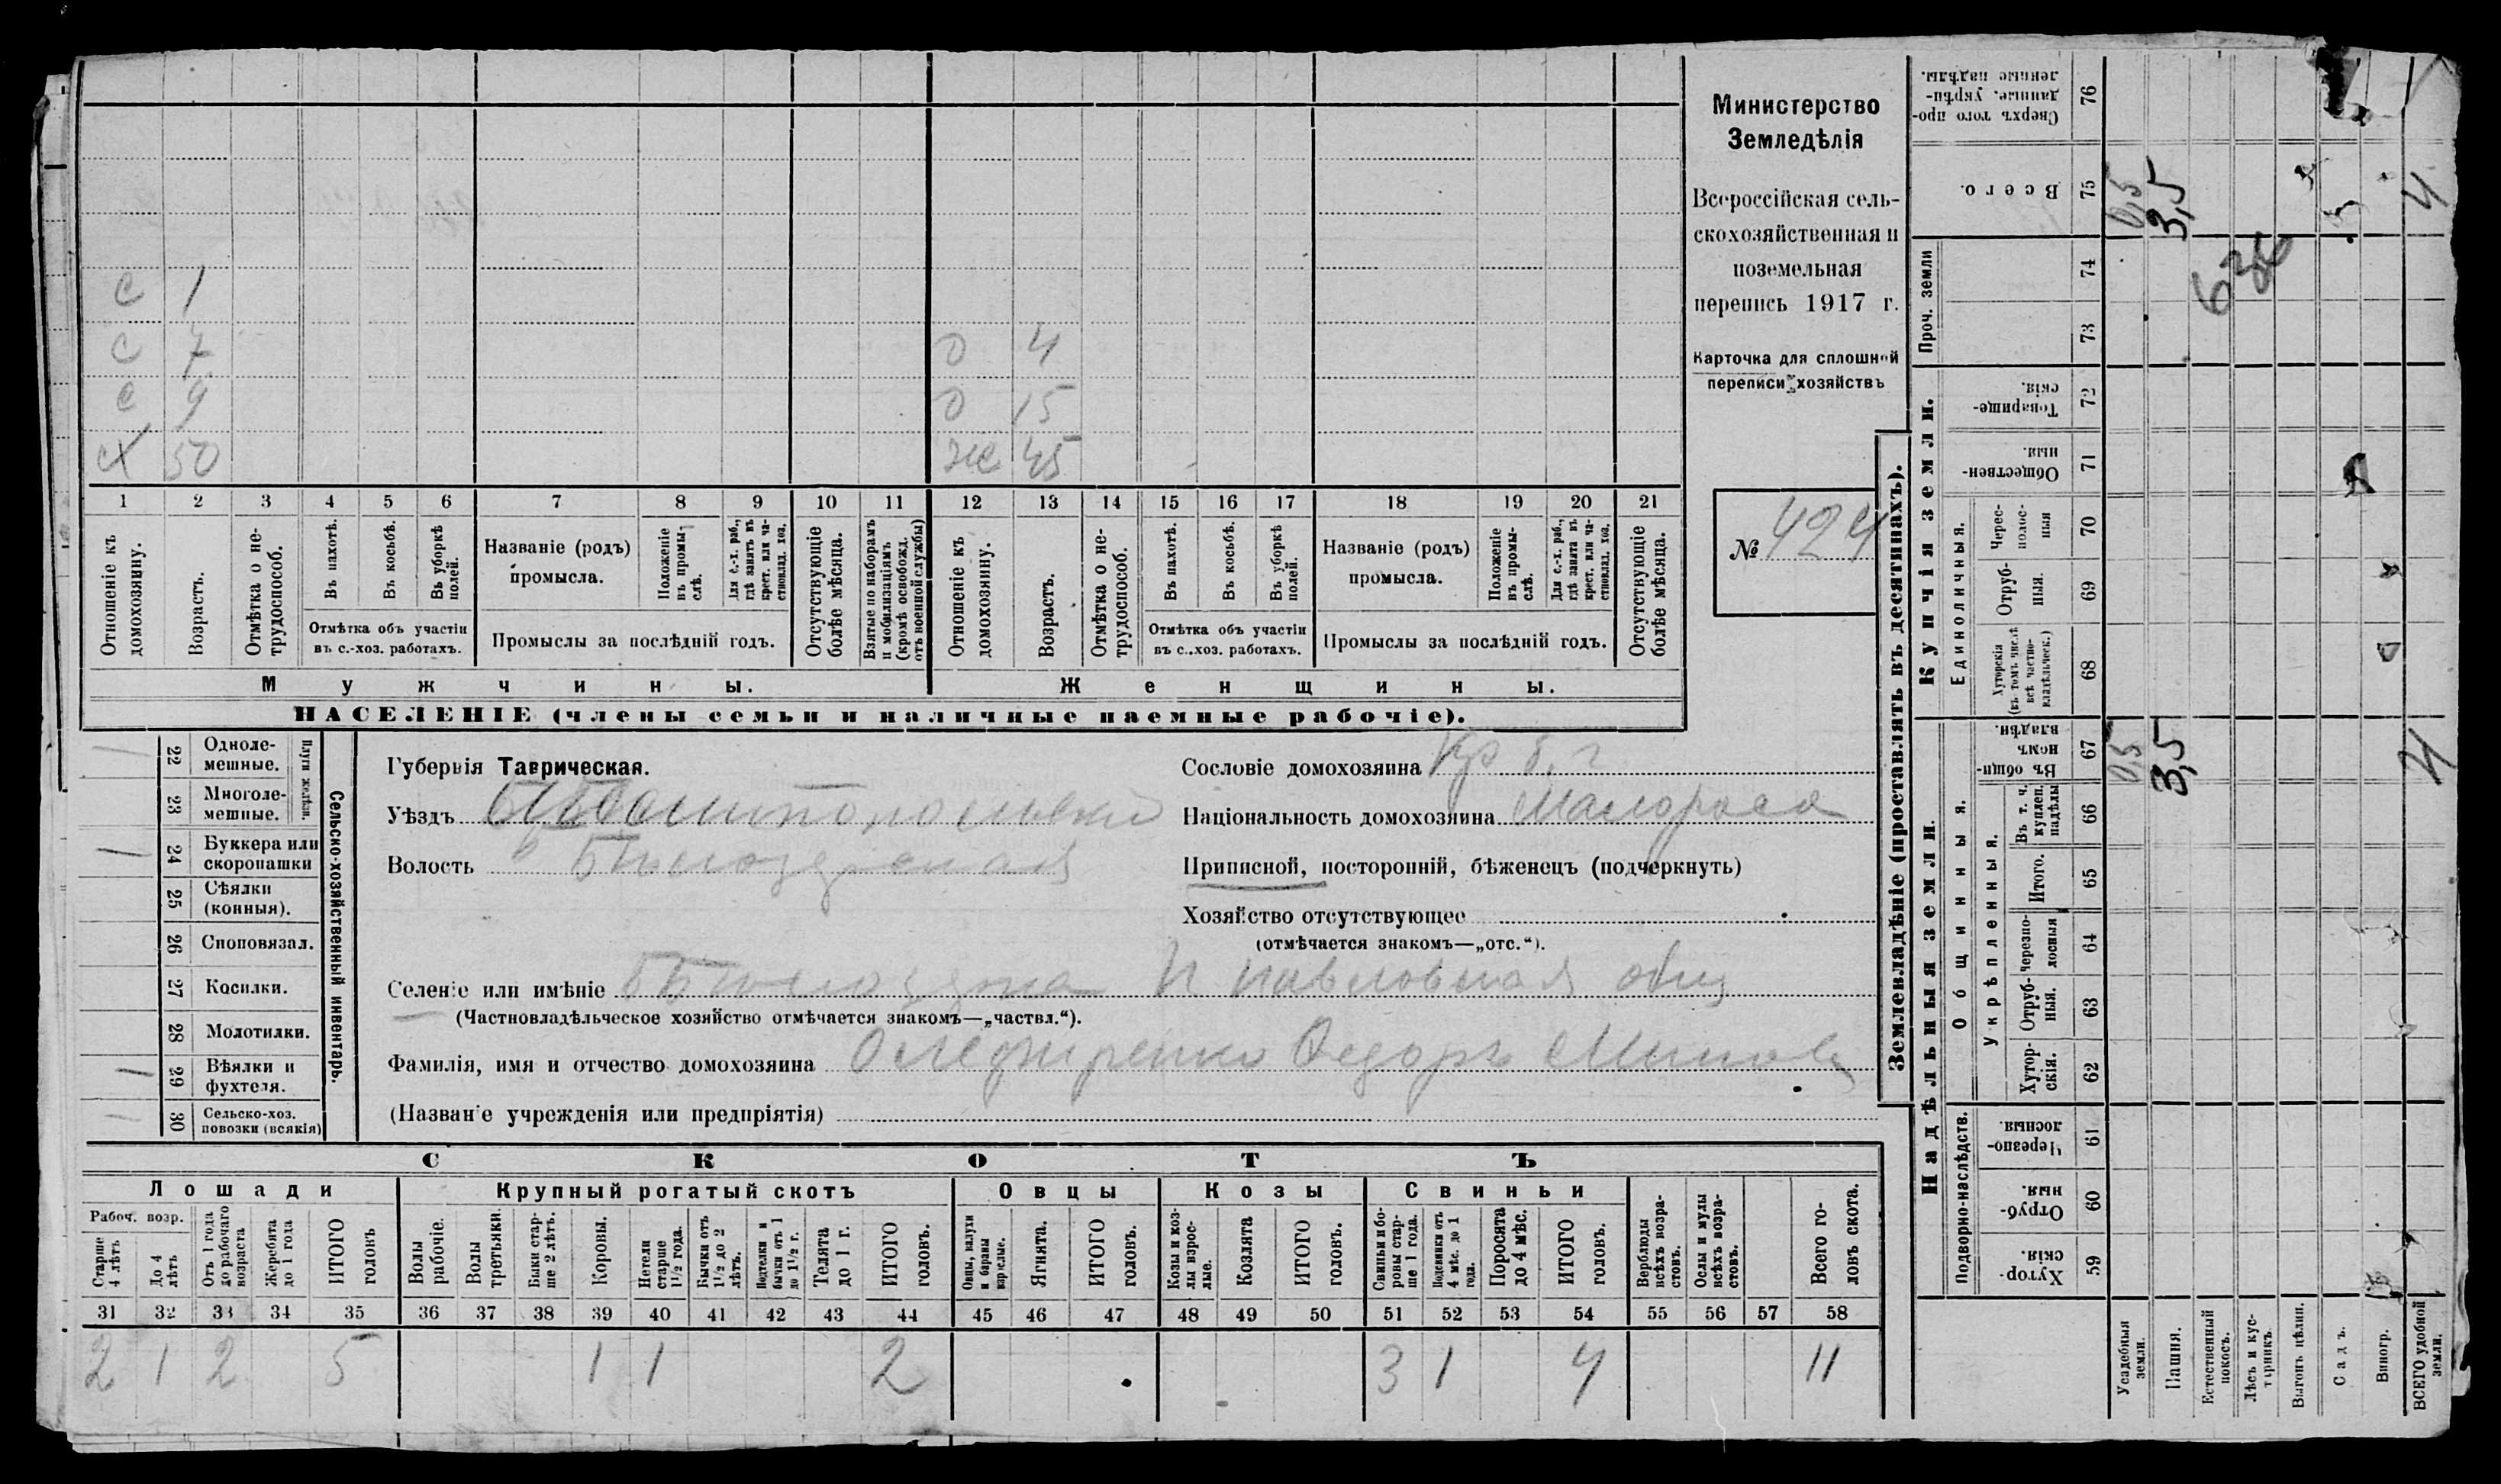 с 1
с 7 о 4
с 9 о 15
х 50 ж 45
1 2 3 4 5 6 7 8 9 10 11 12 13 14 15 16 17 18 19 20 21
Отношеніе къ домохозяину.
Возрастъ.
Отмѣтка о не-трудоспособ.
Въ пахотѣ.
Въ косьбѣ.
Въ уборкѣ полей.
Отмѣтка объ участіи
въ с.-хоз. работахъ.
Названіе (родъ)
промысла.
Положеніе въ промы-слѣ.
Для с.-х. раб., гдѣ занятъ въ крест. или ча-стновлад. хоз.
Промыслы за послѣдній годъ.
Отсутствующіе болѣе мѣсяца.
Взятые по наборамъ и мобилизаціямъ (кромѣ освобожд. отъ военной службы)
Отношеніе къ домохозяину.
Возрастъ.
Отмѣтка о не-трудоспособ.
Въ пахотѣ.
Въ косьбѣ.
Въ уборкѣ полей.
Отмѣтка объ участіи
въ с.-хоз. работахъ.
Названіе (родъ)
промысла.
Положеніе въ промы-слѣ.
Для с.-х. раб., гдѣ занята въ крест. или ча-стновлад. хоз.
Промыслы за послѣдній годъ.
Отсутствующіе болѣе мѣсяца.
Мужчины. Женщины.
НАСЕЛЕНІЕ (члены семьи и наличные наемные рабочіе).
Министерство
Земледѣлія
Всероссійская сель-
скохозяйственная и
поземельная
перепись 1917 г.
Карточка для сплошной
переписи хозяйствъ
№ 424
Сельско-хозяйственный инвентарь.
Плуги желѣзн.
22 Одноле-мешные.
23 Многоле-мешные.
24 Буккера или скоропашки
25 Сѣялки (конныя).
26 Сноповязал.
27 Косилки.
28 Молотилки.
29 Вѣялки и фухтеля.
30 Сельско-хоз. повозки (всякія)
Губернія Таврическая.
Уѣздъ
Волость Бѣлозерская
Сословіе домохозяина Кр
Національность домохозяина Малороса
Приписной, посторонній, бѣженецъ (подчеркнуть)
Хозяйство отсутствующее
(отмѣчается знакомъ—„отс.“).
Селеніе или имѣніе Бѣлозерка П павловская общ
(Частновладѣльческое хозяйство отмѣчается знакомъ—„частвл.“).
Фамилія, имя и отчество домохозяина Федоръ
(Названіе учрежденія или предпріятія)
СКОТЪ
Лошади Крупный рогатый скотъ Овцы Козы Свиньи
Рабоч. возр.
Старше 4 лѣтъ
До 4 лѣтъ
Отъ 1 года до рабочаго возраста
Жеребята до 1 года
ИТОГО головъ
Волы рабочіе.
Волы третьяки.
Быки стар-ше 2 лѣтъ.
Коровы.
Нетели старше 1½ года.
Бычки отъ 1½ до 2 лѣтъ.
Подтелки и бычки отъ 1 до 1½ г.
Телята до 1 г.
ИТОГО головъ.
Овцы, валухи и бараны взрослые.
Ягнята.
ИТОГО головъ.
Козы и коз-лы взрос-лые.
Козлята
ИТОГО головъ.
Свиньи бо-ровы стар-ше 1 года.
Подсвинки отъ 4 мѣс. до 1 года.
Поросята до 4 мѣс.
ИТОГО головъ.
Верблюды всѣхъ возра-стовъ.
Ослы и мулы всѣхъ возра-стовъ.
Всего го-ловъ скота.
31 32 33 34 35 36 37 38 39 40 41 42 43 44 45 46 47 48 49 50 51 52 53 54 55 56 57 58
2 1 2 5 1 1 2 3 1 4 11
Землевладѣніе (проставлять въ десятинахъ).
Надѣльныя земли.
Подворно-наслѣдств.
Хутор-скія. 59
Отруб-ныя. 60
Черезпо-лосныя. 61
Общинныя.
Укрѣпленныя.
Хутор-скія. 62
Отруб-ныя. 63
Черезпо-лосныя 64
Итого. 65
Въ т. ч. куплен. надѣлы 66
Въ общин-номъ владѣн. 67
Купчія земли.
Единоличныя.
Хуторскія (въ томъ числѣ всѣ частно-владѣльческ.) 68
Отруб-ныя. 69
Черес-полос-ныя 70
Обществен-ныя. 71
Товарище-скія. 72
Проч. земли
73
74
Всего. 75
Сверхъ того про-данные. укрѣп-ленные надѣлы. 76
Усадебныя земли. 0,5 0,5
Пашня. 3,5 3,5
Естественный покосъ.
Лѣсъ и кус-тарникъ.
Выгонъ цѣлин.
Садъ.
Виногр.
ВСЕГО удобной земли. 4 4